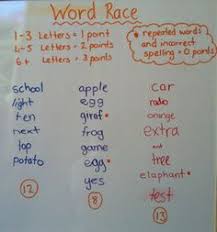 Word Race
1-3 Letters = 1 point
4-5 Letters = 2 points
6+ Letters = 3 points
* repeated words
and incorrect
spelling = 0 points
school
light
ten
next
top
potato
12
apple
egg
giraf *
frog
game
egg *
yes
8
car
radio
orange
extra
ant
tree
elaphant *
test
13